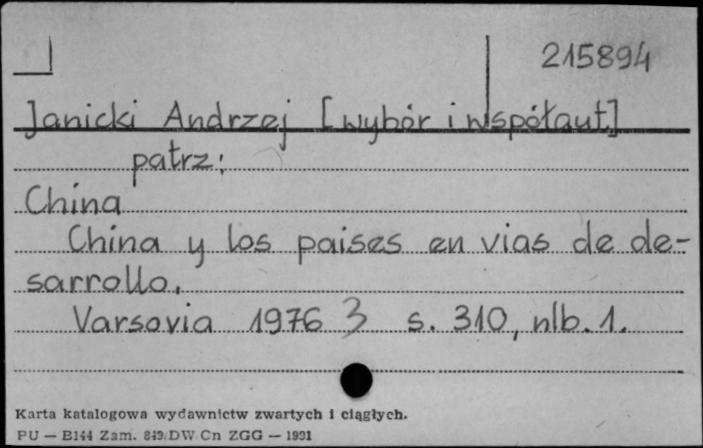 215894
Janicki Andrzej [wybór i współaut.]
patrz:
China
China y los paises en vias de de-
sarrollo.
Varsovia 1976 3 s. 310, nlb. 1.
Karta katalogowa wydawnictw zwartych i ciągłych.
PU — B144 Zam. 849/DW Cn ZGG — 1991